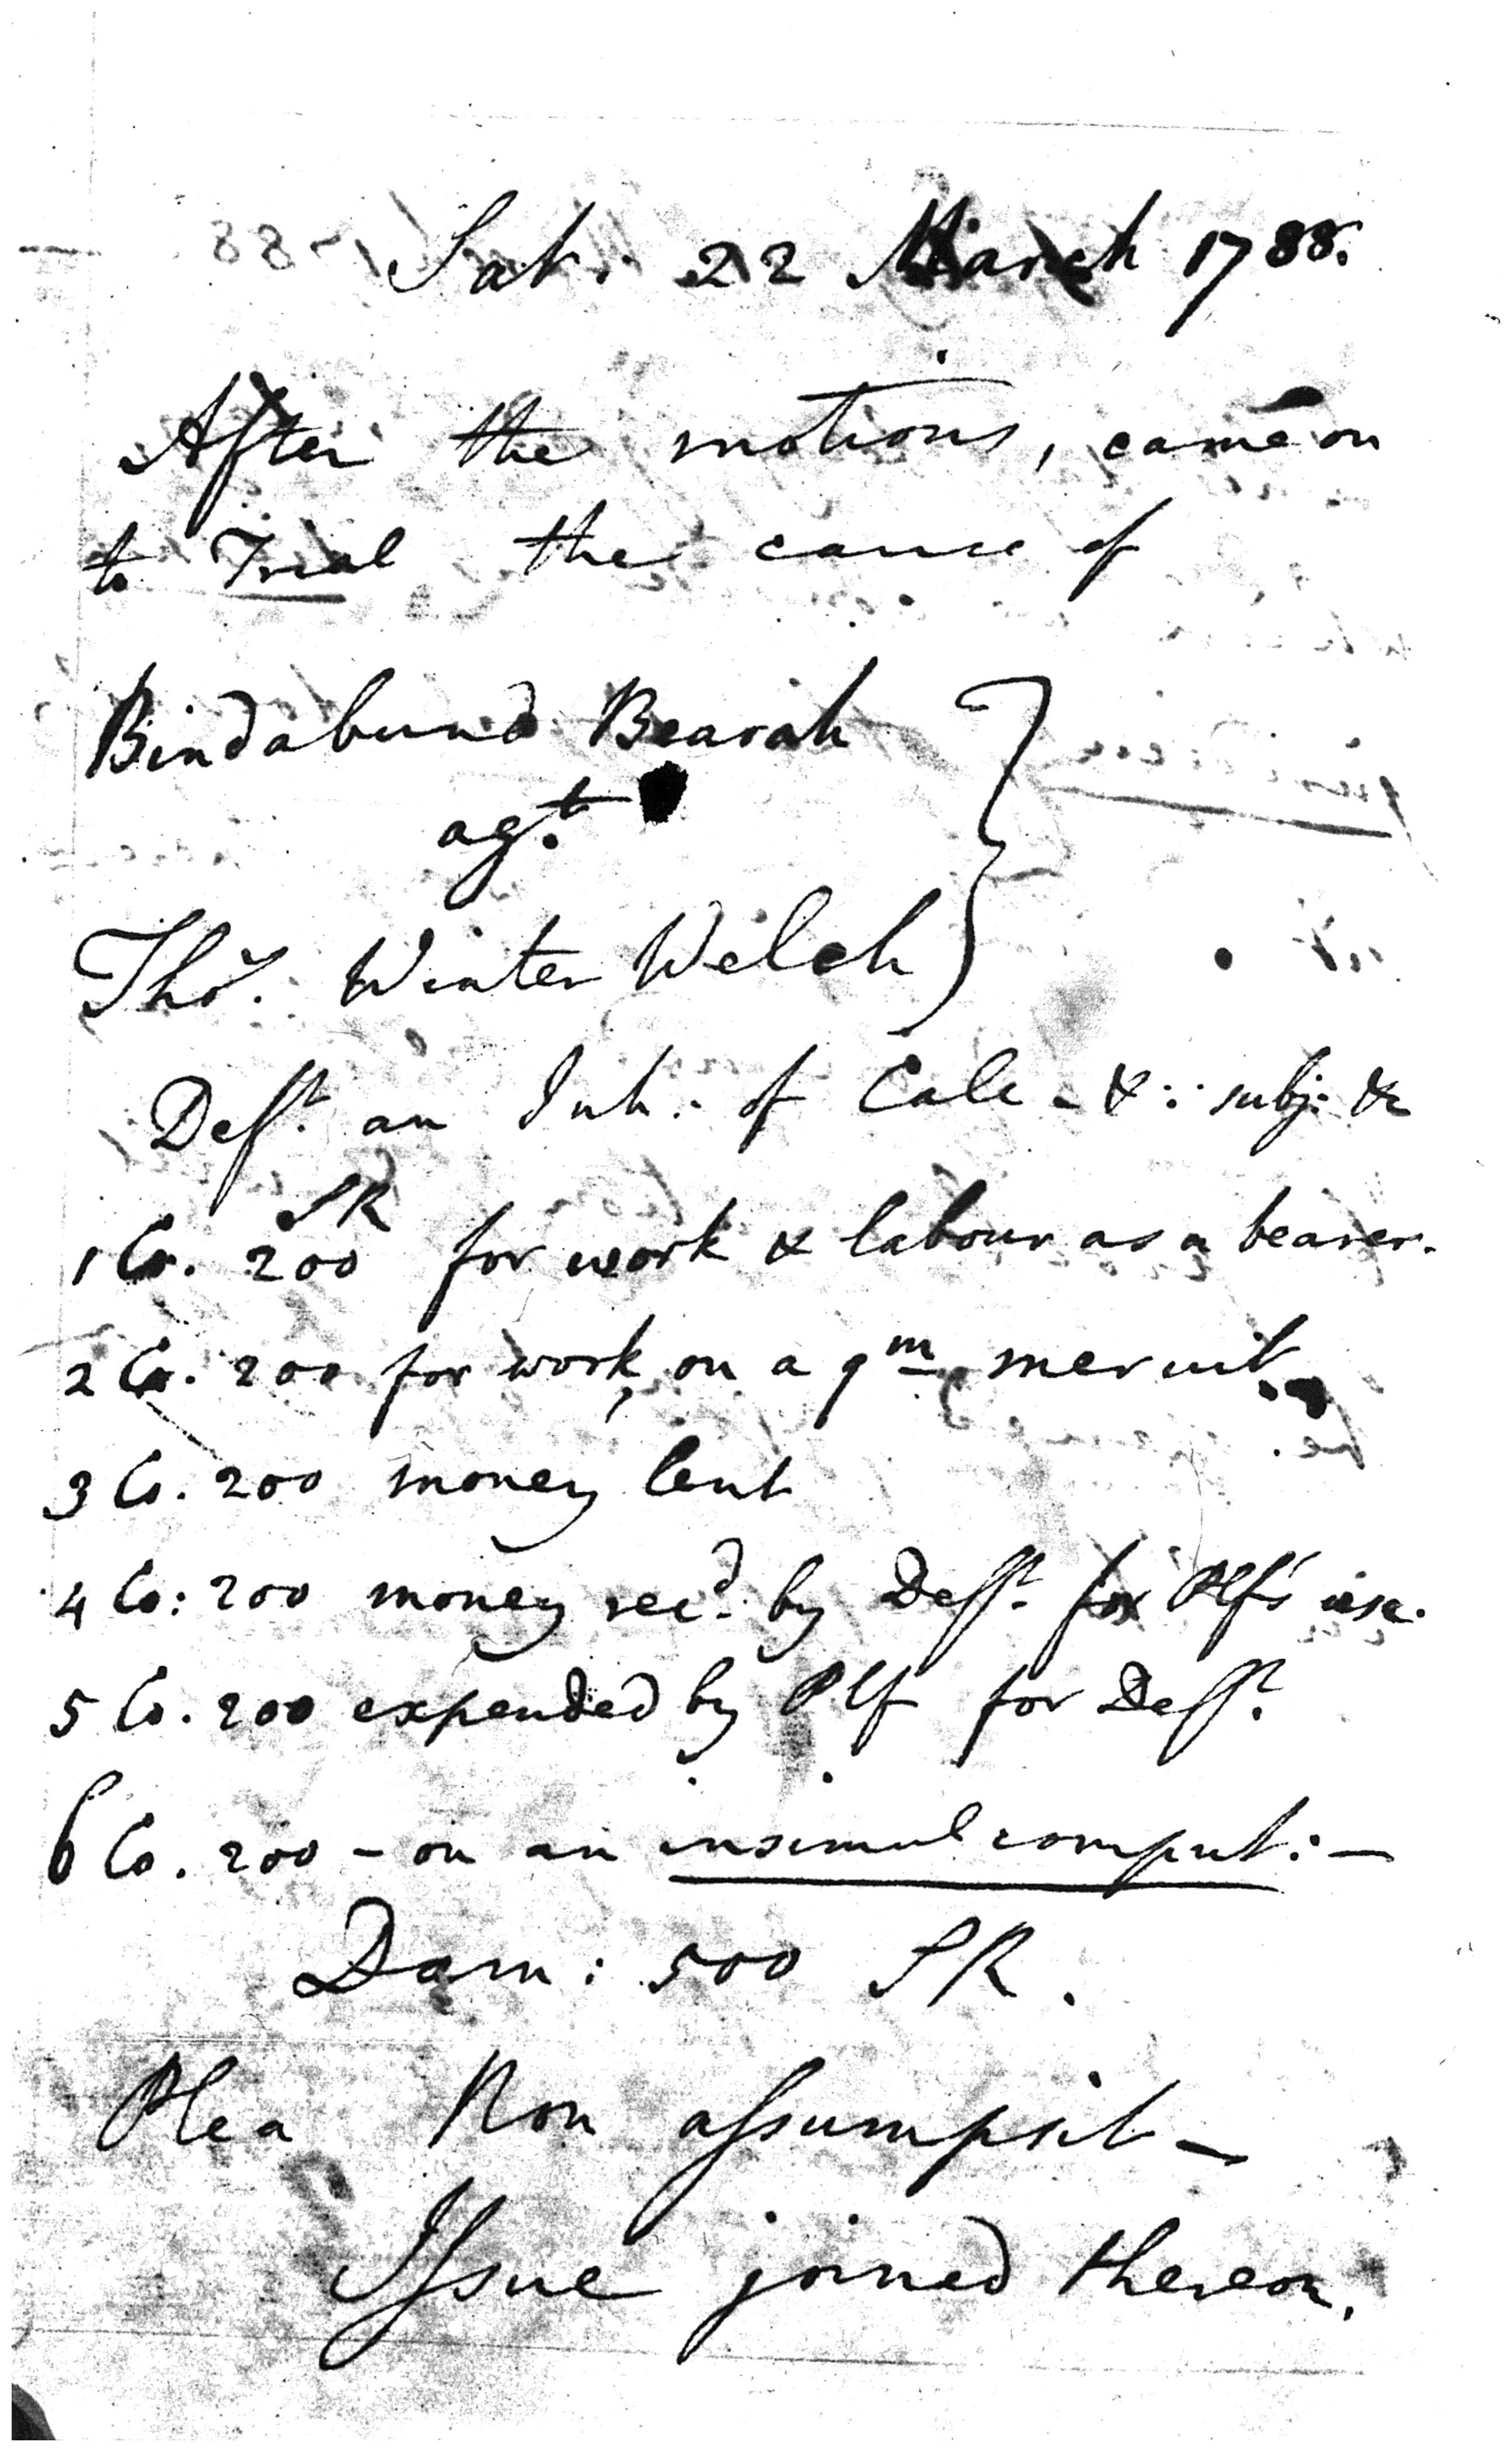 Sat. 22 March 1788.
After the motions, came on
to Trial the cause of
Bindabund Bearah
agt.
Thos. Winter Welch
Deft. an Inh: of Calc - & : subj: &c
SR
1 Co. 200 for work & labour as a bearer.
2 Co. 200 for work, on a qm meruit.
3 Co. 200 money lent
4 Co: 200 money recd. by Deft. for Plf's use.
5 Co. 200 expended by Plf for Deft.
6 Co. 200 - on an insimul comput: -
Dam: 500 SR.
Plea Non assumpsit -
Issue joined thereon.